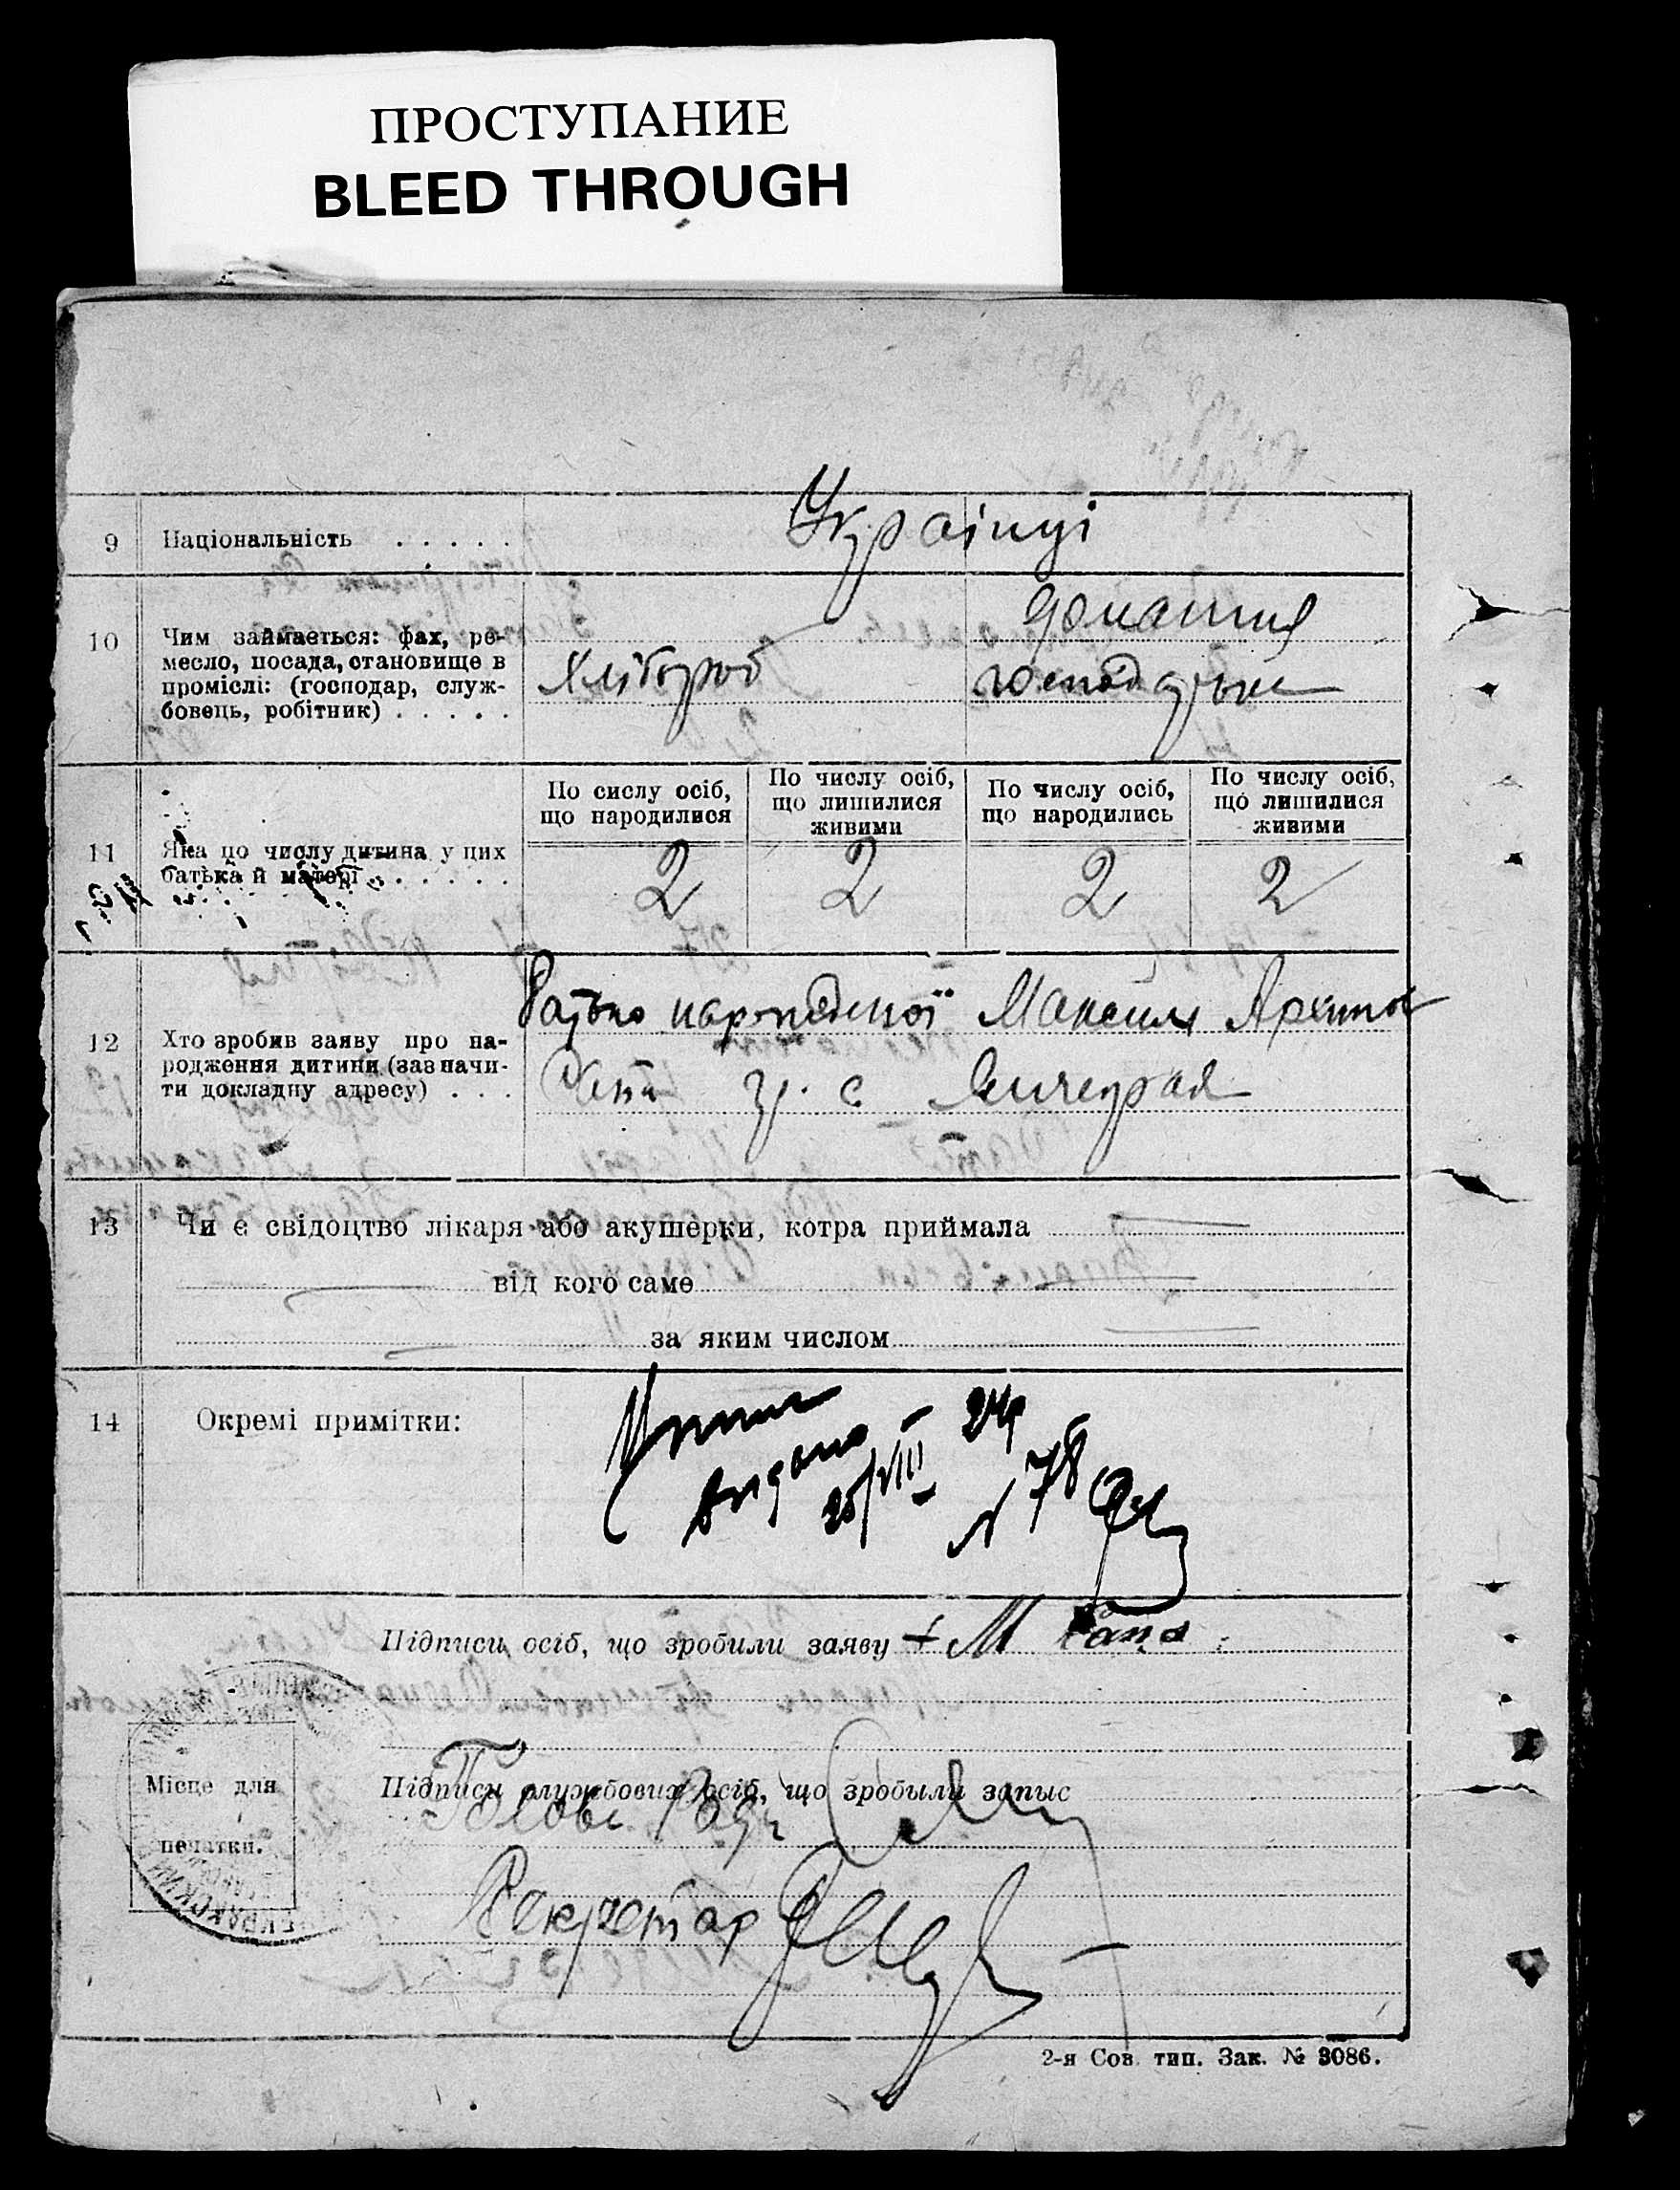 ПРОСТУПАНИЕ
BLEED THROUGH
9 Національність . . . . . Українці
10 Чим займаеться: фах, ре-
месло, посада, становище в
проміслі: (господар, служ-
бовець, робітник) . . . . .
Хлібороб
домашня
господарька
11 Яка по числу дитина у цих
батька й матері . . . . . .
По сислу осіб,
що народилися
2
По числу осіб,
що лишилися
живими
2
По числу осіб,
що народились
2
По числу осіб,
що лишилися
живими
2
12 Хто зробив заяву про на-
родження дитини (зазначи-
ти докладну адресу) . . .
Батько народженої Максим
гр. с.
13 Чи є свідоцтво лікаря або акушерки, котра приймала
від кого саме
за яким числом
14 Окремі примітки:
видано
25/VIII – 24р
№ 78
Підписи осіб, що зробили заяву + М
Підписи службових осіб, що зробыли запыс
Голова Ради
Секретар
Місце для
печатки.
2-я Сов. тип. Зак. № 3086.